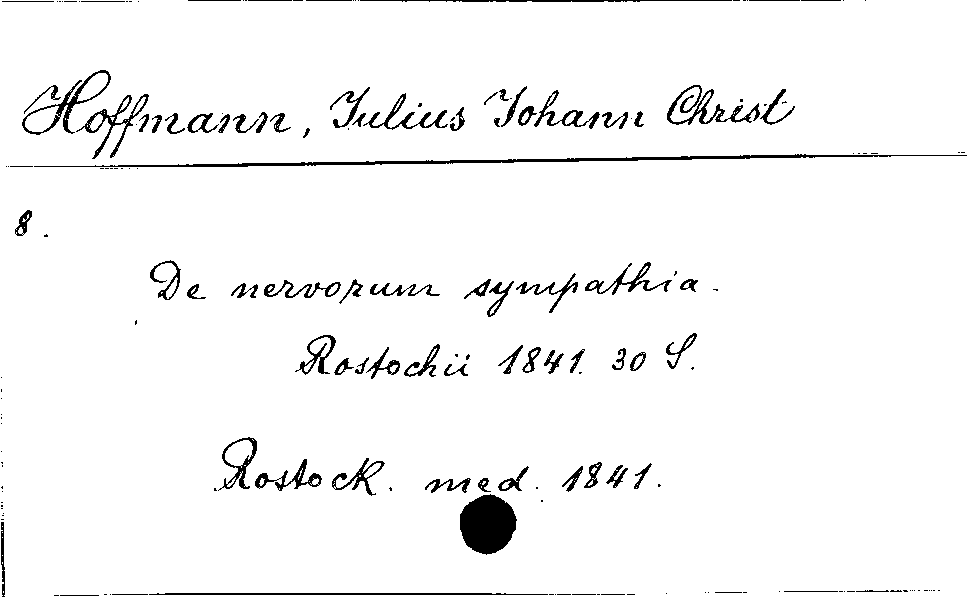 Hoffmann, Julius Johann Christ
8.
De nervorum sympathia.
Rostochii 1841. 30 S.
Rostock. med. 1841.